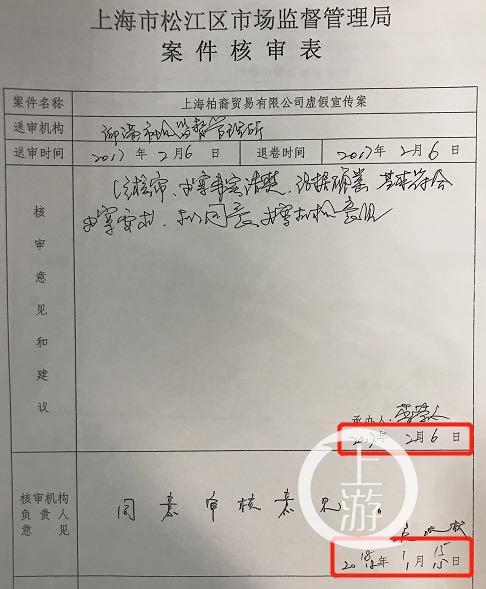 上海市松江区市场监督管理局
案件核审表
案件名称 上海柏裔贸易有限公司虚假宣传案
送审机构 市场监督管理所
送审时间 2017年2月6日 退卷时间 2017年2月6
核审意见和建议
经核审，办案事实清楚，证据确凿 基本符合
办案 拟同意 办案机构意见
承办人：
2017年2月6日
核审机构负责人意见
同意审核意见。
2018年1月15日
上游